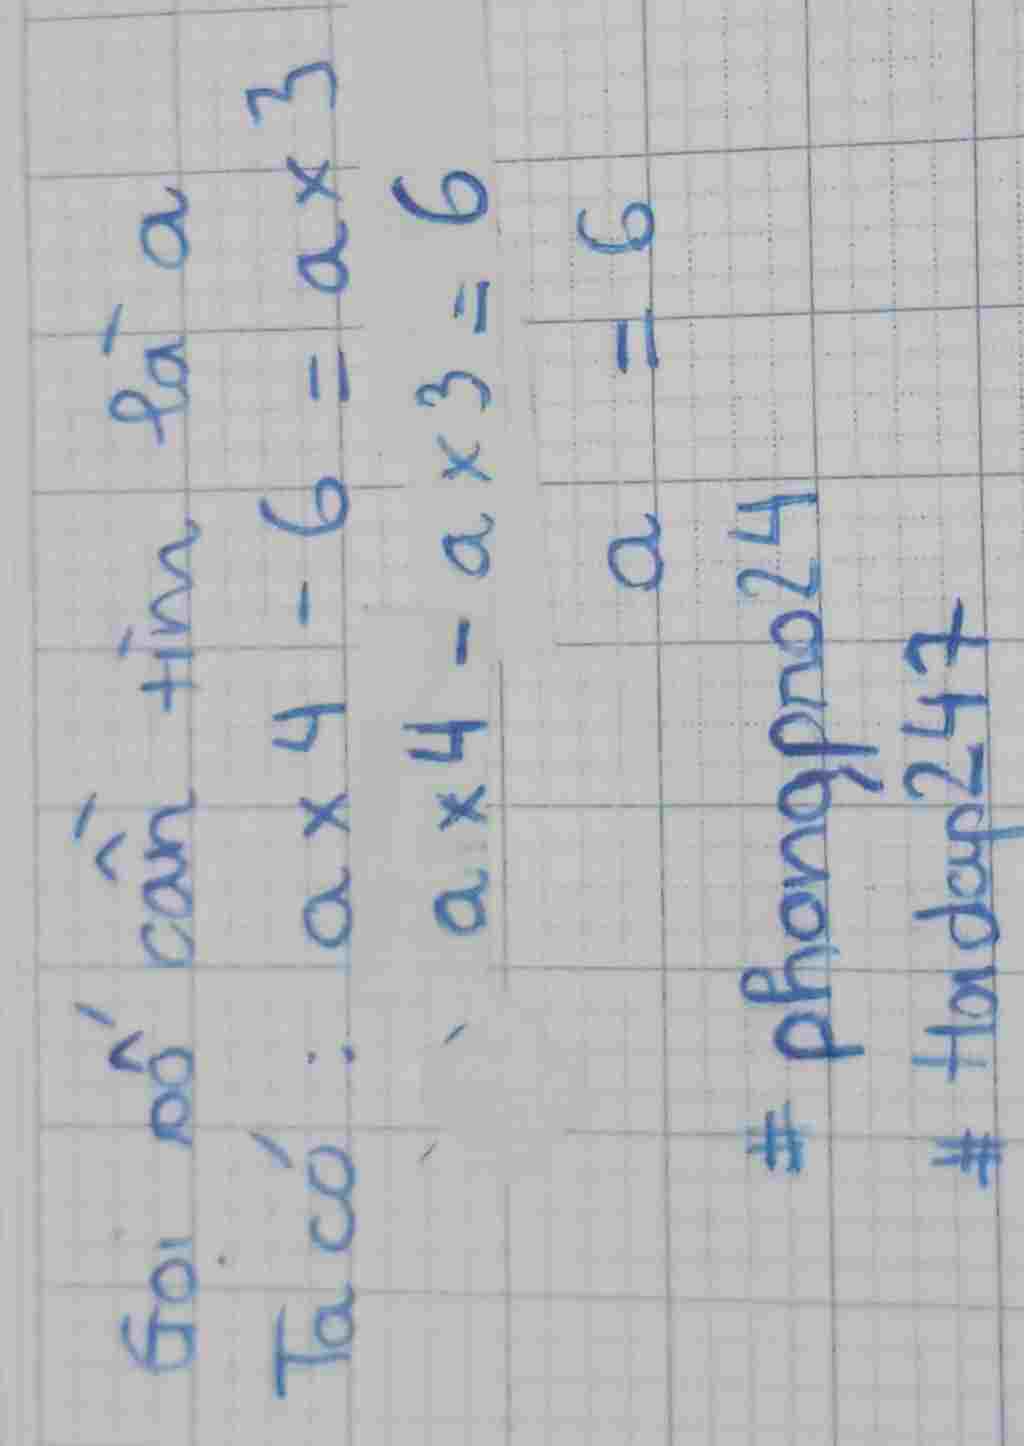 Gọi số cần tìm là a
Ta có : a x 4 - 6 = a x 3
a x 4 - a x 3 = 6
a = 6
# phongpro24
# Hoidap247